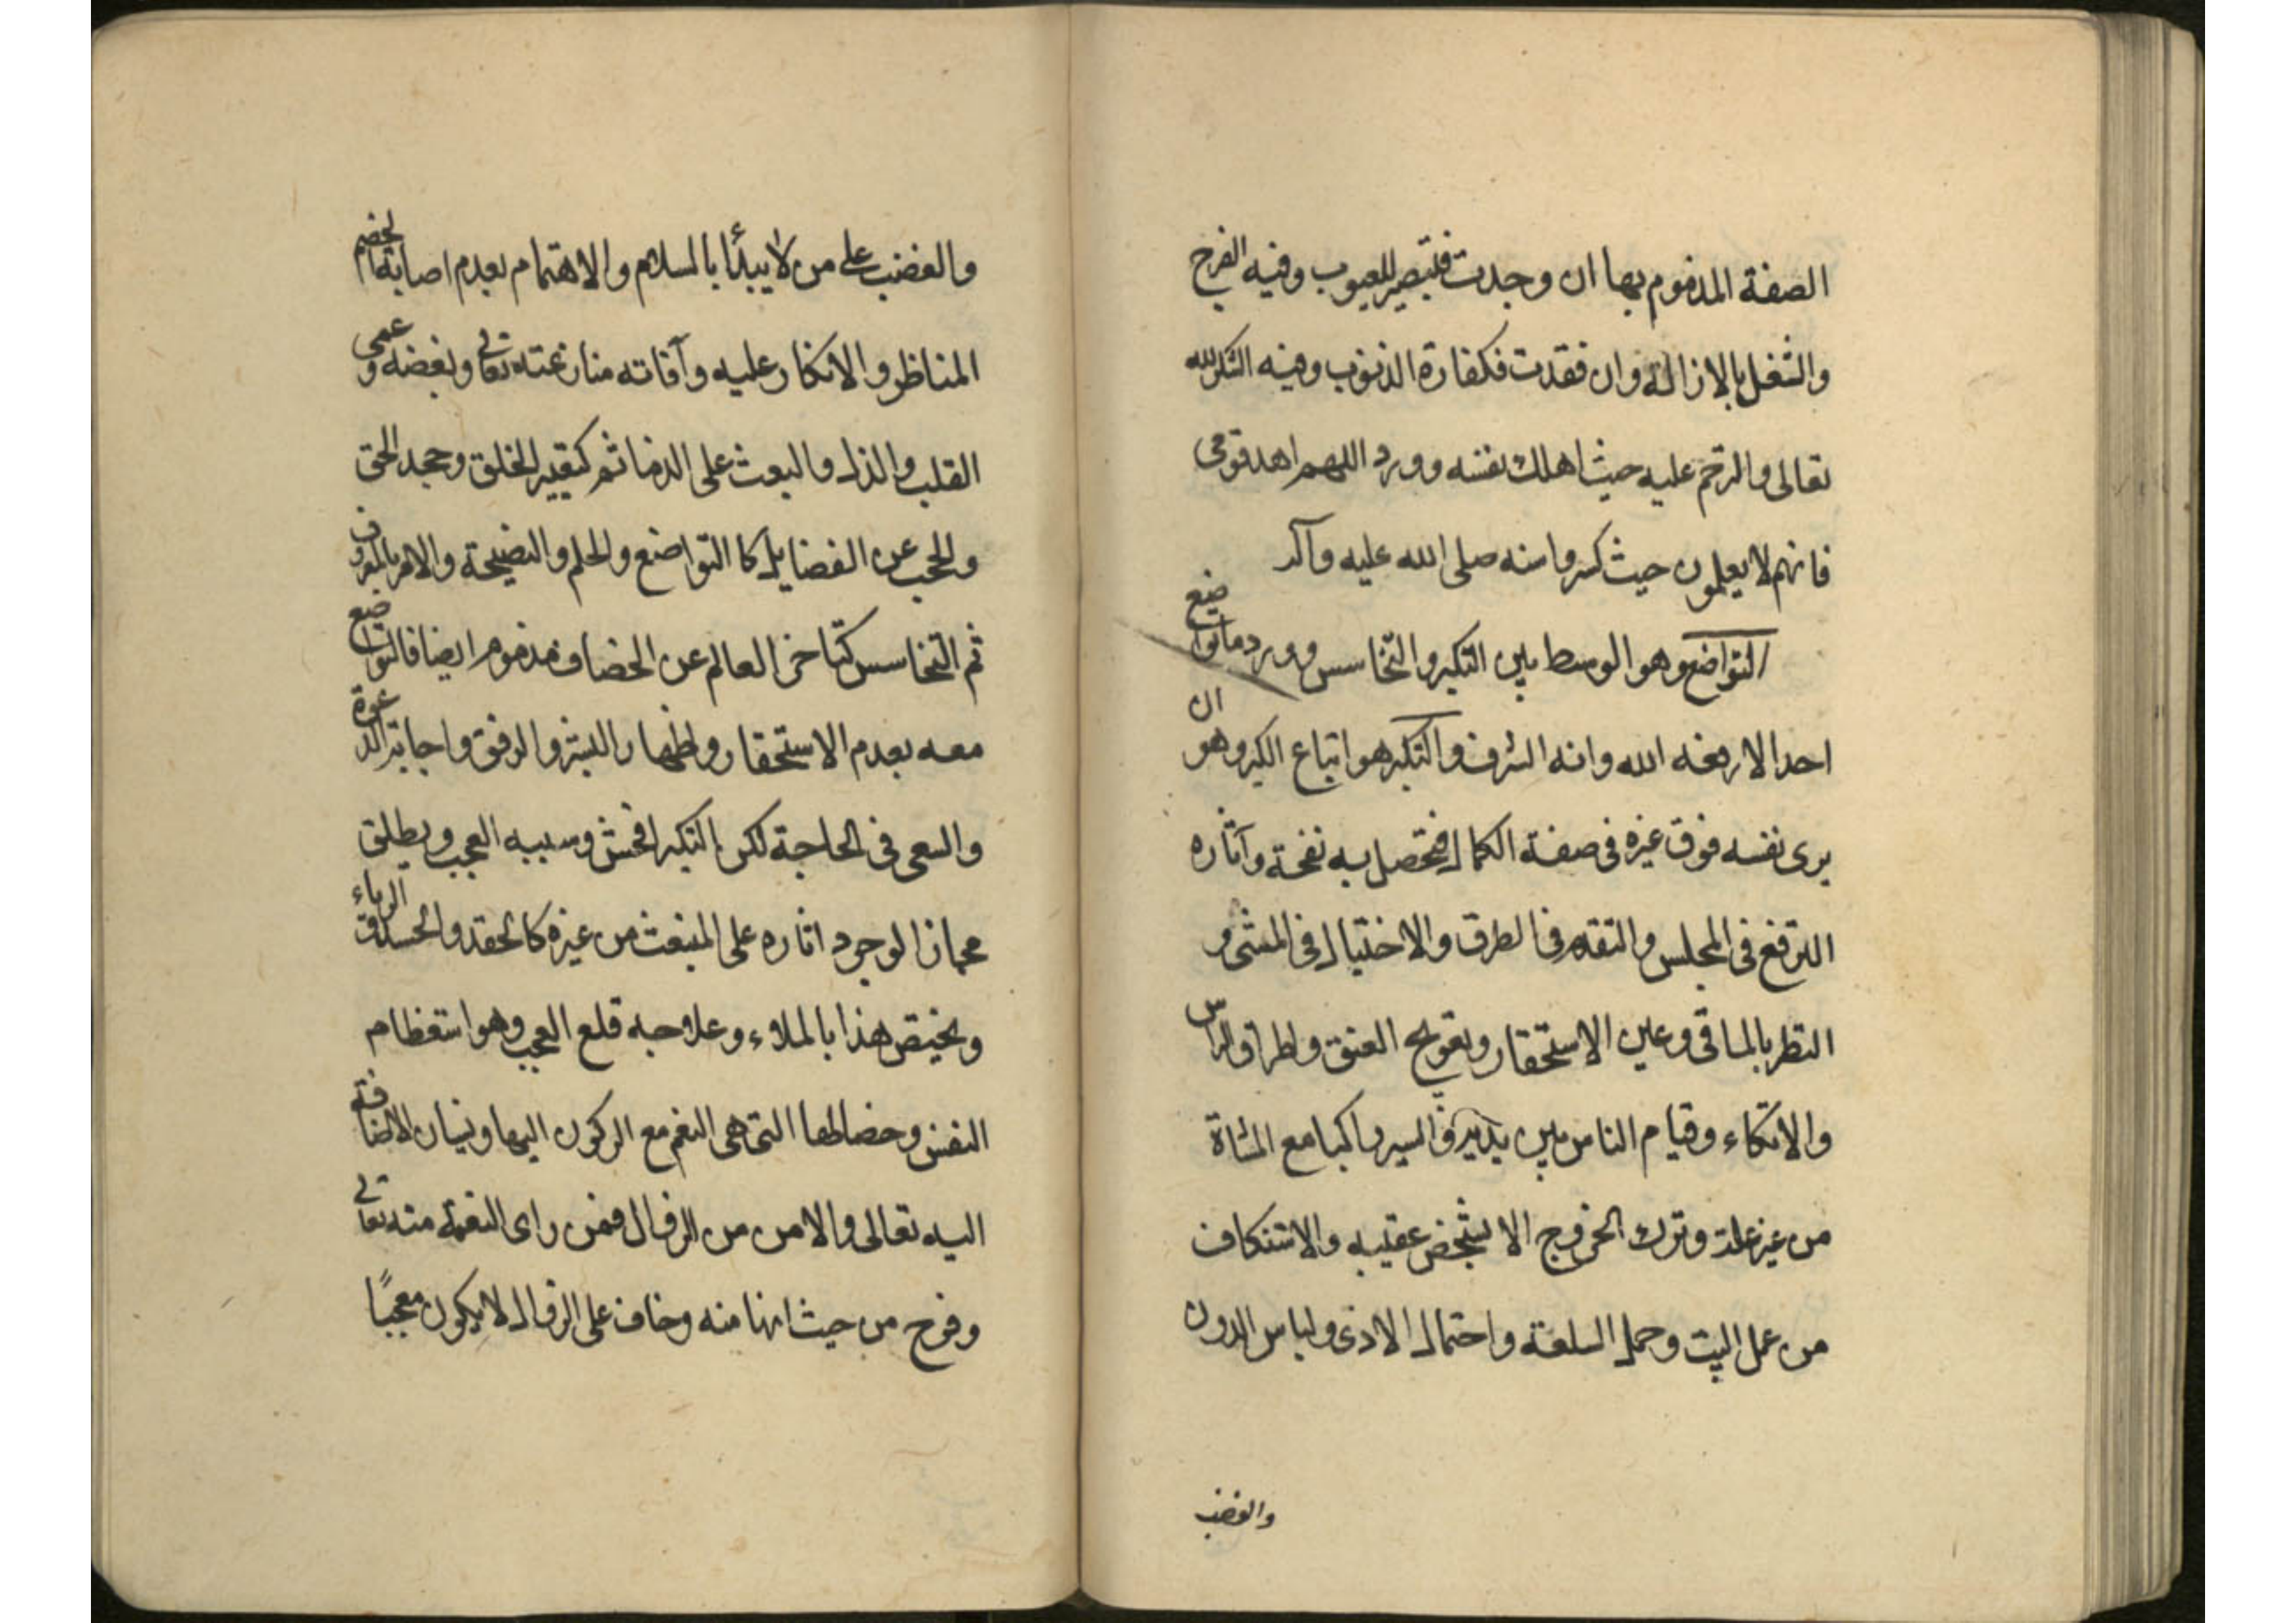 الصفة المذموم بها ان وجدت فليصير للعيوب وفيه الفرح
والشغل بالازالة وان فقدت فكفارة الذنوب وفيه الشكر لله
تعالى والترحم عليه حيث اهلك نفسه وورد اللهم اهد قومى
فانهم لا يعلمون حيث كسروا سنه صلى الله عليه وآله
التواضع وهو الوسط بين التكبر والتخاسس وورد ما تواضع
احد الا رفعه الله وانه الشرف والتكبر هو اتباع الكبر وهو ان
يرى نفسه فوق غيره فى صفة الكمال فتحصل به نفخة وآثاره
الترفع فى المجلس والتقدم فى الطرق والاختيال فى المشى و
النظر بالماقى وعين الاستحقار وتعويج العنق واطراق الراس
والاتكاء وقيام الناس بين يديه والسير راكبا مع المشاة
من غير علة وترك الخروج الا بشخص عقيبه والاستنكاف
من عمل البيت وحمل السلعة واحتمال الاذى ولباس الدون
والغضب
والغضب على من لا يبدأ بالسلام والاهتمام بعدم اصابة الخصم
المناظر والانكار عليه وآفاته منازعته تعالى وبغضه وعمى
القلب والذل والبعث على الذمائم كتقيير الخلق وجحد الحق
والحجب عن الفضايل كالتواضع والحلم والنصيحة والامر بالمعروف
ثم التخاسس كتاخر العالم عن الخصاف مذموم ايضا فالتواضع
معه بعدم الاستحقار واظهار البشر والرفق واجابة الدعوة
والسعى فى الحاجة لكن التكبر افحش وسببه العجب ويطلق
مجازا لوجود اثاره على المنبعث من غيره كالحقد والحسد والرياء
ويختص هذا بالملاء وعلاجه قلع العجب وهو استعظام
النفس وخصالها التى هى النعم مع الركون اليها ونسيان الاضافة
اليه تعالى والامن من الزوال فمن راى النعمة منه تعالى
وفرح من حيث انها منه وخاف على الزوال لا يكون معجبًا